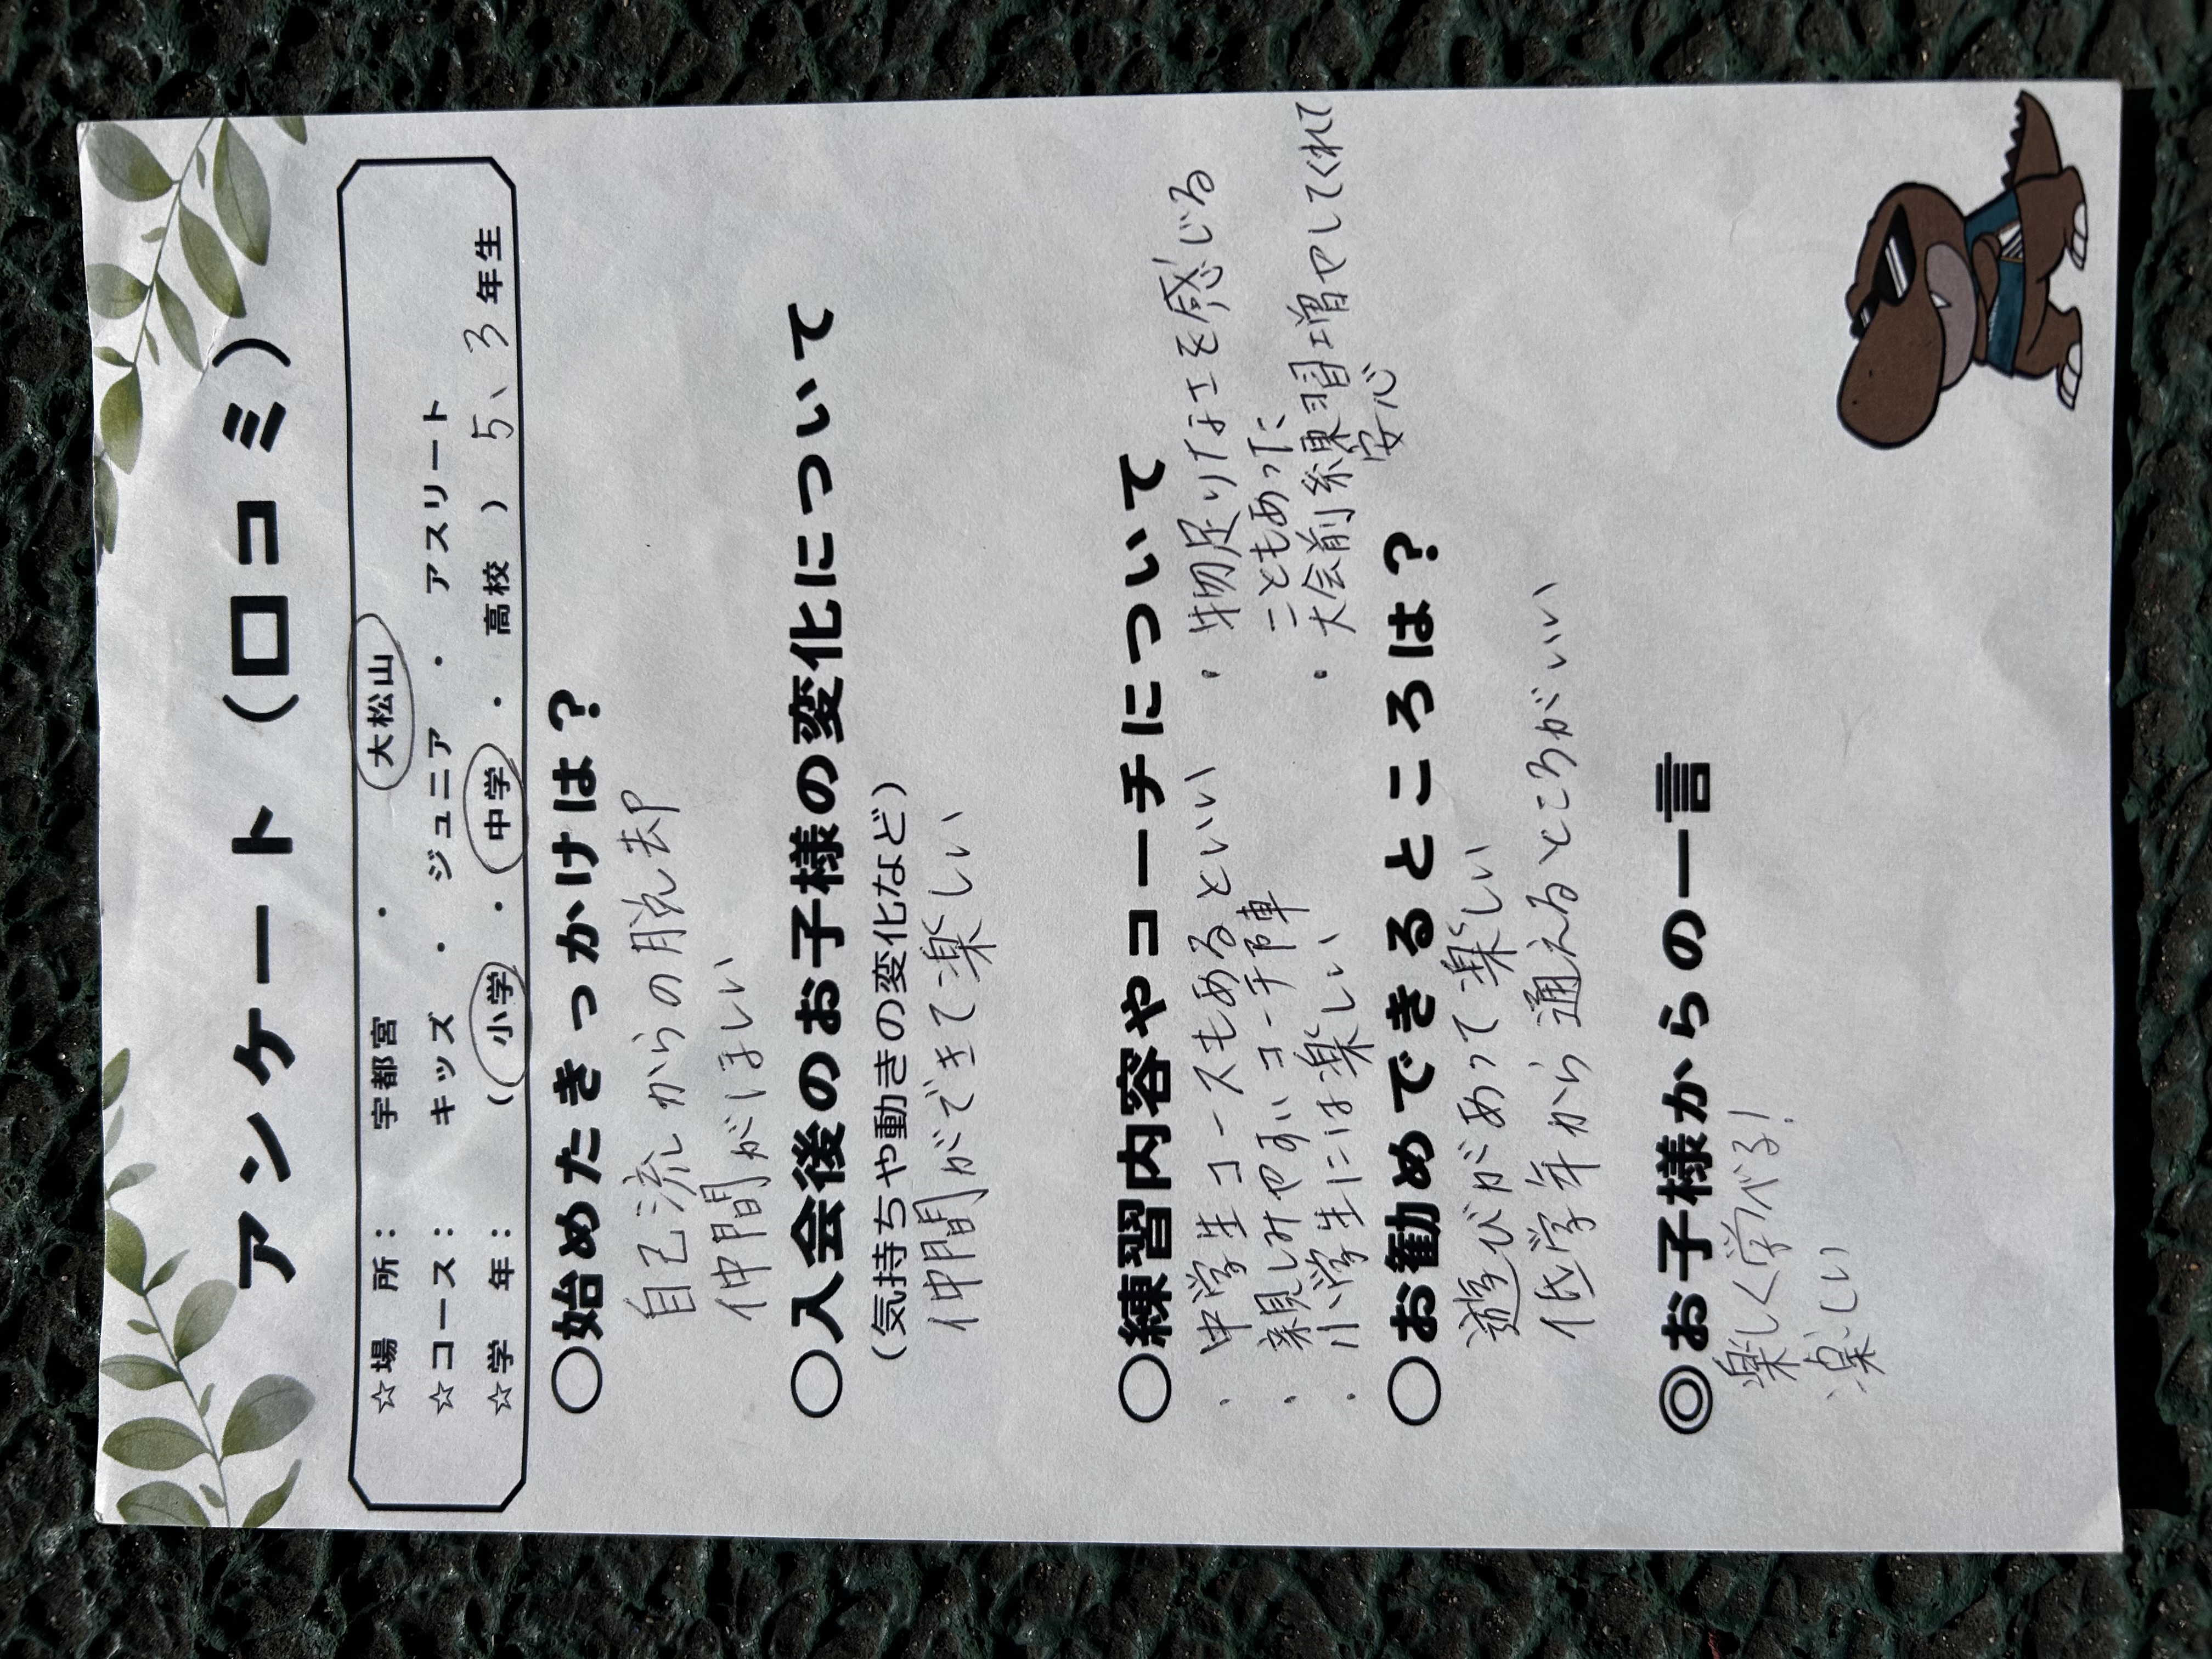 アンケート（口コミ）
☆場　所：　宇都宮　・　大松山
☆コース：　キッズ　・　ジュニア　・　アスリート
☆学　年：　（小学　・　中学　・　高校　）5、3年生
○始めたきっかけは？
自己流からの脱却
仲間がほしい
○入会後のお子様の変化について
（気持ちや動きの変化など）
仲間ができて楽しい
○練習内容やコーチについて
・中学生コースもあるといい
・親しみやすいコーチ陣
・小学生には楽しい
・物足りなさを感じる
こともあった
・大会前練習増やしてくれて
安心
○お勧めできるところは？
遊びがあって楽しい
低学年から通えるところがいい
◎お子様からの一言
楽しく学べる！
楽しい